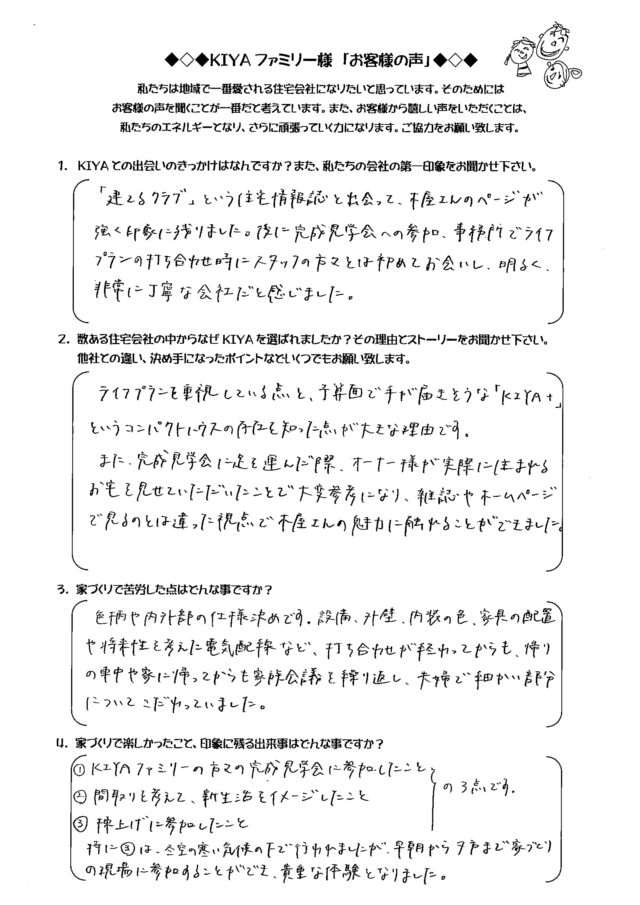 ◆◇◆KIYAファミリー様「お客様の声」◆◇◆
私たちは地域で一番愛される住宅会社になりたいと思っています。そのためには
お客様の声を聞くことが一番だと考えています。また、お客様から嬉しい声をいただくことは、
私たちのエネルギーとなり、さらに頑張っていく力になります。ご協力をお願い致します。
1. KIYAとの出会いのきっかけはなんですか？また、私たちの会社の第一印象をお聞かせ下さい。
「建てるクラブ」という住宅情報誌と出会って、木屋さんのページが
強く印象に残りました。後に完成見学会への参加、事務所でライフ
プランの打ち合わせ時にスタッフの方々とは初めてお会いし、明るく、
非常に丁寧な会社だと感じました。
2. 数ある住宅会社の中からなぜKIYAを選ばれましたか？その理由とストーリーをお聞かせ下さい。
他社との違い、決め手になったポイントなどいくつでもお願い致します。
ライフプランを重視している点と、予算面で手が届きそうな「KIYA+」
というコンパクトハウスの存在を知った点が大きな理由です。
また、完成見学会に足を運んだ際、オーナー様が実際に住まわれる
お宅を見せていただいたことで大変参考になり、雑誌やホームページ
で見るのとは違った視点で木屋さんの魅力に触れることができました。
3. 家づくりで苦労した点はどんな事ですか？
色柄や内外部の仕様決めです。設備、外壁、内装の色、家具の配置
や将来性を考えた電気配線など、打ち合わせが終わってからも、帰り
の車中や家に帰ってからも家族会議を繰り返し、夫婦で細かい部分
についてこだわっていました。
4. 家づくりで楽しかったこと、印象に残る出来事はどんな事ですか？
① KIYAファミリーの方々の完成見学会に参加したこと
② 間取りを考えて、新生活をイメージしたこと
の3点です。
③ 棟上げに参加したこと
特に③は、冬空の寒い気候の下で行われましたが、早朝から夕方まで家づくり
の現場に参加することができ、貴重な体験となりました。